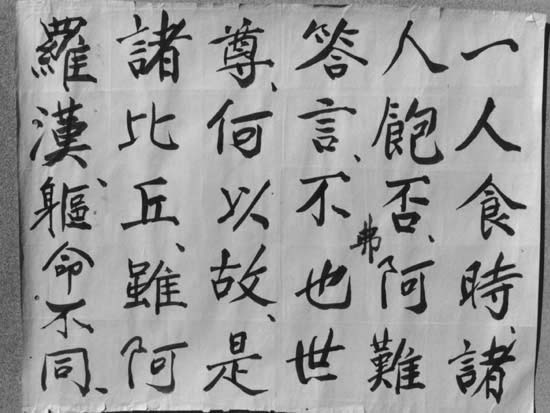 一人食時、諸
人飽否、阿難
弗
答言、不也世
尊、何以故、是
諸比丘、雖阿
羅漢、軀命不同、